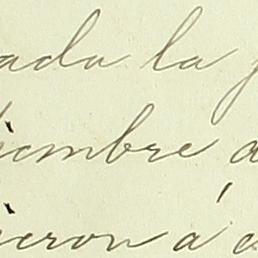 ada la
iembre
ieron á